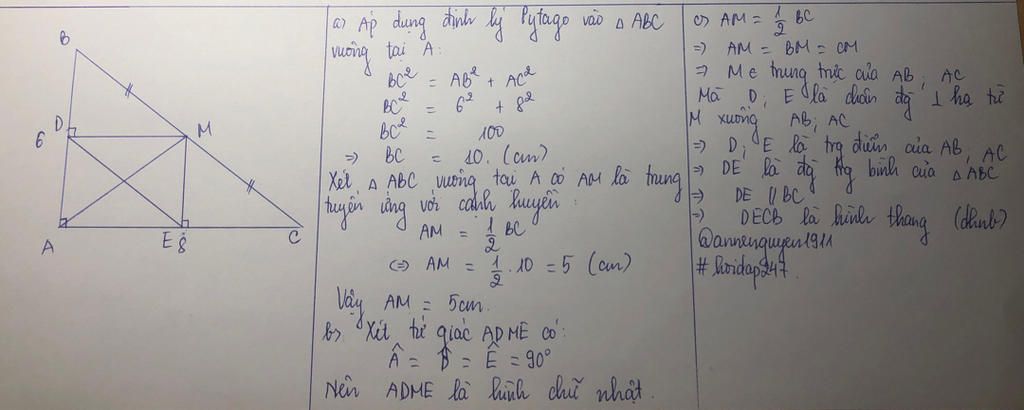 B
D
6
M
A
E
8
C
a) Áp dụng định lý Pytago vào △ ABC
vuông tại A:
BC² = AB² + AC²
BC² = 6² + 8²
BC² = 100
=> BC = 10. (cm)
Xét △ ABC vuông tại A có AM là trung
tuyến ứng với cạnh huyền:
AM = 1/2 BC
<=> AM = 1/2 . 10 = 5 (cm)
Vậy AM = 5cm.
b) Xét tứ giác ADME có:
Â = D̂ = Ê = 90°
Nên ADME là hình chữ nhật.
c) AM = 1/2 BC
=> AM = BM = CM
=> M ∈ trung trực của AB; AC
Mà D; E là chân đg ⊥ hạ từ
M xuống AB; AC
=> D; E là trg điểm của AB; AC
=> DE là đg trg bình của △ ABC
=> DE // BC
=> DECB là hình thang (dhnb)
@annenguyen1911
# hoidap247.